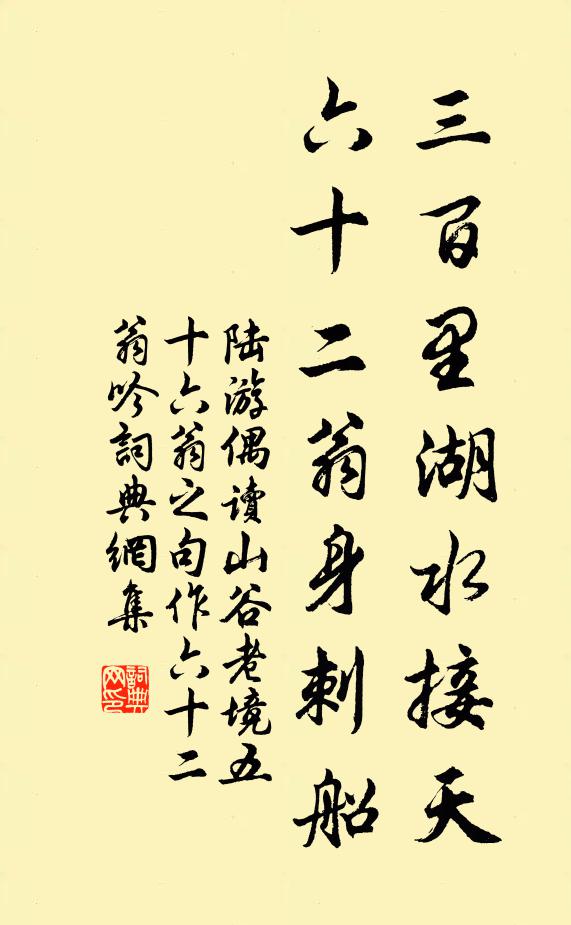 三百里湖水接天
六十二翁身刺船
陆游偶讀山谷老境五
十六翁之句作六十二
翁吟詞典網集
詞典
网印